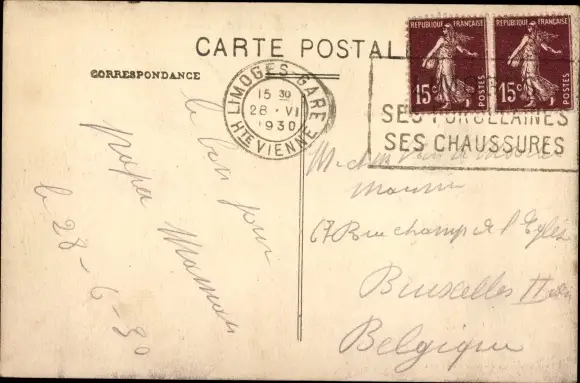 CARTE POSTALE
CORRESPONDANCE
REPUBLIQUE FRANÇAISE
15c POSTES
REPUBLIQUE FRANÇAISE
15c POSTES
LIMOGES-GARE
15 30
28 · VI
1930
HTE VIENNE
SES PORCELAINES
SES CHAUSSURES
le bon jour
papa Maman
le 28-6-30
67 Rue champ de l'Eglise
Bruxelles II
Belgique